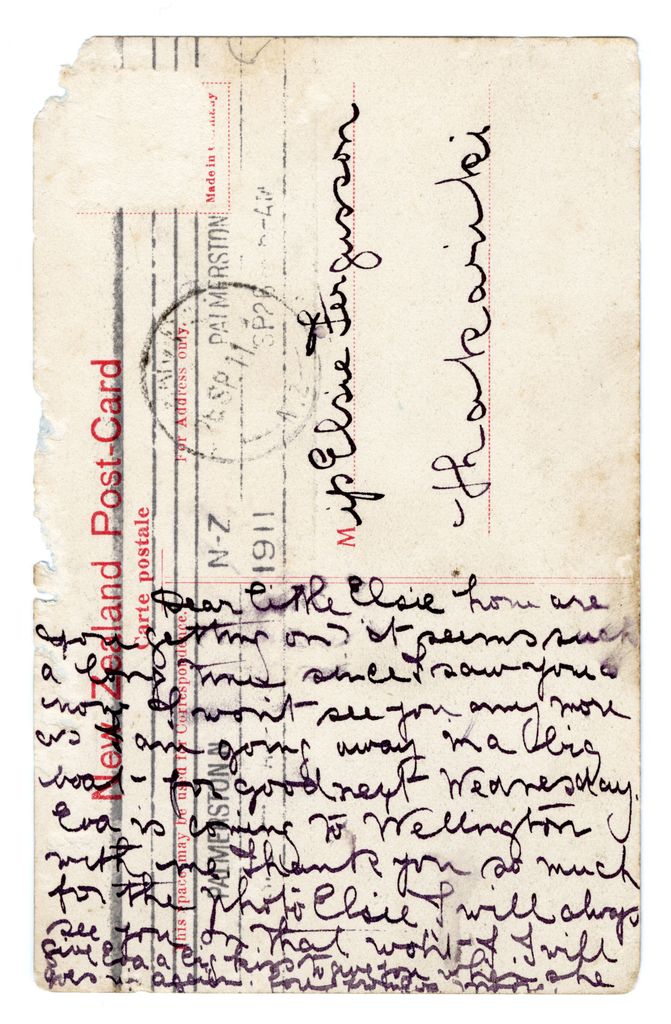 New Zealand Post-Card
Carte postale
This space may be used for Correspondence.
For Address only.
Made in
PALMERSTON N-Z
1911
PALMERSTON N
SP 26
SP 11
Miss Elsie Fergusson
Dear little Elsie how are
you getting on it seems such
a long time since I saw you &
now I won't see you any more
as I am going away in a big
boat for good next Wednesday.
Eva is coming to Wellington
with me, thank you so much
for the photo Elsie I will always
see you in that won't I. I will
give Eva a big kiss to give you when she
goes up again.